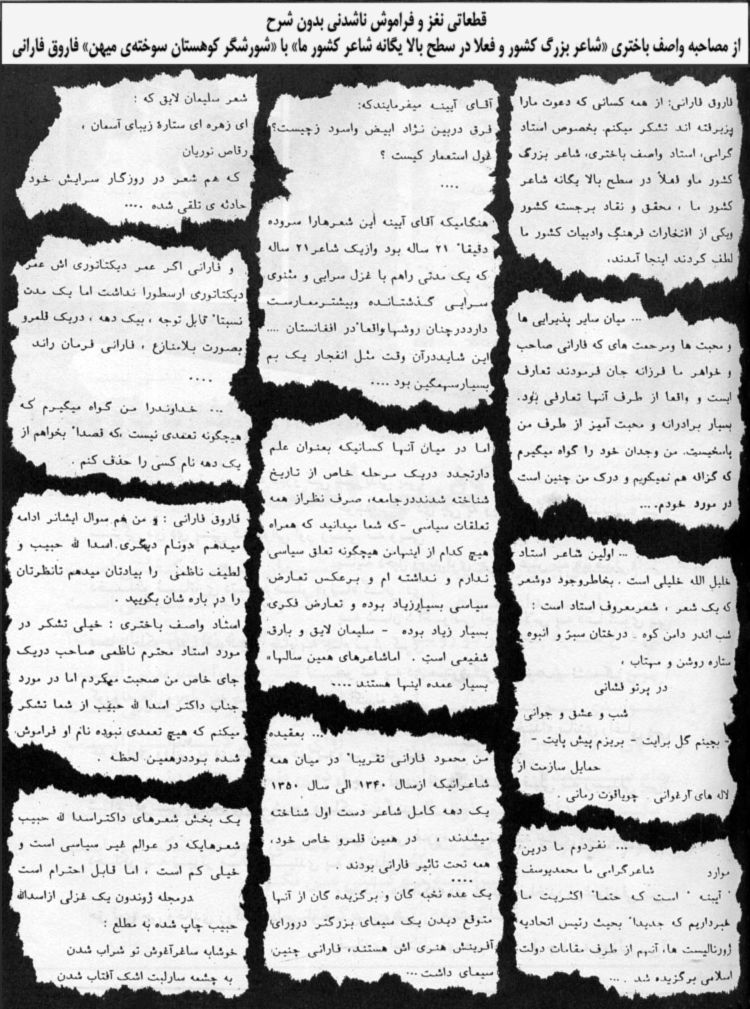 قطعاتی نغز و فراموش ناشدنی بدون شرح
از مصاحبه واصف باختری «شاعر بزرگ کشور و فعلا در سطح بالا یگانه شاعر کشور ما» با «شورشگر کوهستان سوخته‌ی میهن» فاروق فارانی
فاروق فارانی: از همه کسانی که دعوت مارا
پزیرفته اند تشکر میکنم. بخصوص استاد
گرامی، استاد واصف باختری، شاعر بزرگ
کشور ماو فعلاً در سطح بالا یگانه شاعر
کشور ما ، محقق و نقاد برجسته کشور
ویکی از افتخارات فرهنگ وادبیات کشور ما
لطف کردند اینجا آمدند.
... میان سایر پذیرایی ها
و محبت ها ومرحمت های که فارانی صاحب
و خواهر ما فرزانه جان فرمودند تعارف
است و واقعا از طرف آنها تعارفی بود.
بسیار برادرانه و محبت آمیز از طرف من
پاسخیست. من وجدان خود را گواه میگیرم
که گزافه هم نمیگویم و درک من چنین است
در مورد خودم....
... اولین شاعر استاد
خلیل الله خلیلی است . بخاطروجود دوشعر
که یک شعر ، شعرمعروف استاد است :
شب اندر دامن کوه - درختان سبز و انبوه
ستاره روشن و مهتاب ،
در پرتو فشانی
شب و عشق و جوانی
- بچینم گل برایت - بریزم پیش پایت -
حمایل سازمت از
لاله های ارغوانی - چویاقوت رمانی .
... نفردوم ما درین
موارد شاعرگرامی ما محمدیوسف
" آیینه " است که حتما" اکثریت ما
خبرداریم که جدیدا" بحیث رئیس اتحادیه
ژورنالیست ها، آنهم از طرف مقامات دولت
اسلامی برگزیده شد . ...
آقای آیینه میفرمایندکه:
فرق دربین نژاد ابیض واسود زچیست؟
غول استعمار کیست ؟
....
هنگامیکه آقای آیینه این شعرهارا سروده
دقیقا" ۲۱ ساله بود وازیک شاعر۲۱ ساله
که یک مدتی راهم با غزل سرایی و مثنوی
سرایی گذشتانده وبیشترممارست
دارددرچنان روشهاواقعا"در افغانستان ....
این شایددرآن وقت مثل انفجار یک بم
بسیارسهمگین بود ....
اما در میان آنها کسانیکه بعنوان علم
دارتجدد دریک مرحله خاص از تاریخ
شناخته شدنددرجامعه، صرف نظراز همه
تعلقات سیاسی -که شما میدانید که همراه
هیچ کدام از اینهامن هیچگونه تعلق سیاسی
ندارم و نداشته ام و برعکس تعارض
سیاسی بسیارزیاد بوده و تعارض فکری
بسیار زیاد بوده - سلیمان لایق و بارق
شفیعی است . اماشاعرهای همین سالهاء
بسیار عمده اینها هستند ....
... بعقیده
من محمود فارانی تقریبا" در میان همه
شاعرانیکه ازسال ۱۳۴۰ الی سال ۱۳۵۰
یک دهه کامل شاعر دست اول شناخته
میشدند ، در همین قلمرو خاص خود،
همه تحت تاثیر فارانی بودند .
....
یک عده نخبه گان و برگزیده گان از آنها
متوقع دیدن یک سیمای بزرگتر درورای
آفرینش هنری اش هستند، فارانی چنین
سیمای داشت ...
شعر سلیمان لایق که :
ای زهره ای ستارهٔ زیبای آسمان ،
رقاص نوریان
که هم شعر در روزگار سرایش خود
حادثه ی تلقی شده ....
و فارانی اگر عمر دیکتاتوری اش عمر
دیکتاتوری ارسطورا نداشت اما یک مدت
نسبتا" قابل توجه ، بیک دهه ، دریک قلمرو
بصورت بلامنازع ، فارانی فرمان راند
....
... خداوندرا من گواه میگیرم که
هیچگونه تعمدی نیست ،که قصدا" بخواهم از
یک دهه نام کسی را حذف کنم .
فاروق فارانی : و من هم سوال ایشانر ادامه
میدهم دونام دیگری.اسدا لله حبیب و
لطیف ناظمی را بیادتان میدهم تانظرتان
را در باره شان بگویید .
استاد واصف باختری : خیلی تشکر در
مورد استاد محترم ناظمی صاحب دریک
جای خاص من صحبت میکردم اما در مورد
جناب داکتر اسدا لله حبیب از شما تشکر
میکنم که هیچ تعمدی نبوده نام او فراموش
شده بوددرهمین لحظه .
یک بخش شعرهای داکتراسدا لله حبیب
شعرهایکه در عوالم غیر سیاسی است و
خیلی کم است ، اما قابل احترام است
درمجله ژوندون یک غزلی ازاسدالله
حبیب چاپ شده به مطلع :
خوشابه ساغرآغوش تو شراب شدن
به چشمه سارلبت اشک آفتاب شدن